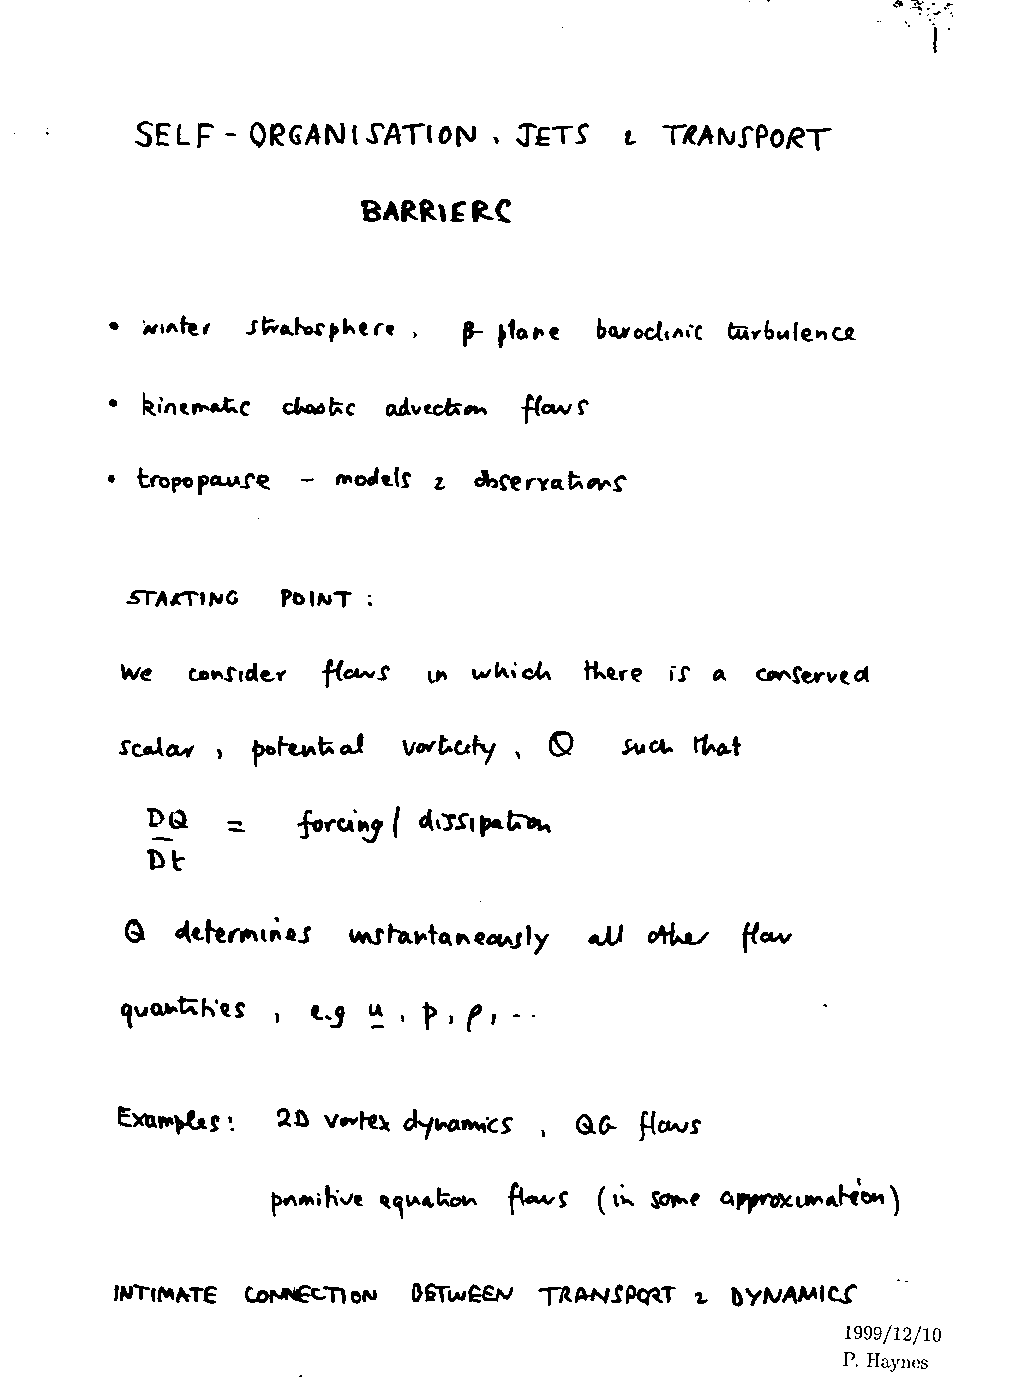 1
SELF-ORGANISATION, JETS & TRANSPORT
BARRIERS
• winter stratosphere, β-plane baroclinic turbulence
• kinematic chaotic advection flows
• tropopause - models & observations
STARTING POINT:
We consider flows in which there is a conserved
scalar, potential vorticity, Q such that
DQ = forcing / dissipation
Dt
Q determines instantaneously all other flow
quantities, e.g u, p, ρ, ...
Examples: 2D vortex dynamics, QG flows
primitive equation flows (in some approximation)
INTIMATE CONNECTION BETWEEN TRANSPORT & DYNAMICS
1999/12/10
P. Haynes